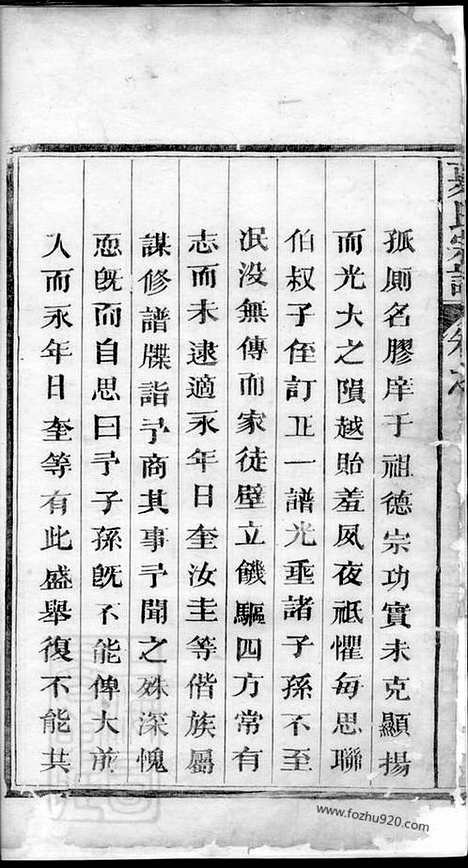 孤廁名膠庠于祖德宗功實未克顯揚
而光大之隕越貽羞夙夜祇懼每思聯
伯叔子侄訂正一譜光垂諸子孫不至
泯没無傳而家徒壁立饑驅四方常有
志而未逮適永年日奎汝圭等偕族屬
謀修譜牒詣予商其事予聞之殊深愧
恧旣而自思曰予子孫旣不能俾大前
人而永年日奎等有此盛舉復不能共
氏宗譜
www.fozhu920.com